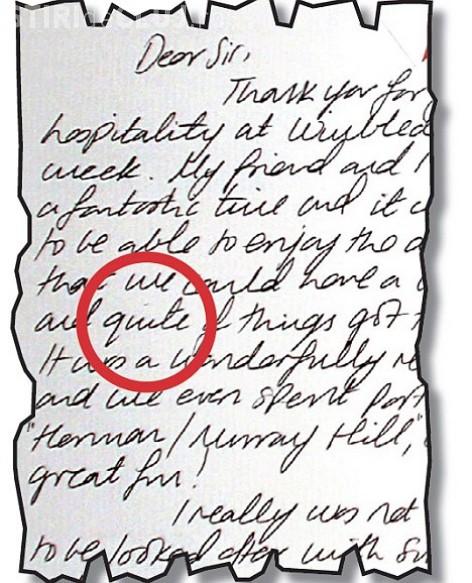 Dear Sir,
Thank you for
hospitality at Wimbled
week. My friend and I
a fantastic time and it
to be able to enjoy the
that we could have a
and quite if things got
It was a wonderfully re
and we even spent part
"Henman / Murray Hill,"
great fun!
I really was not
to be looked after with su